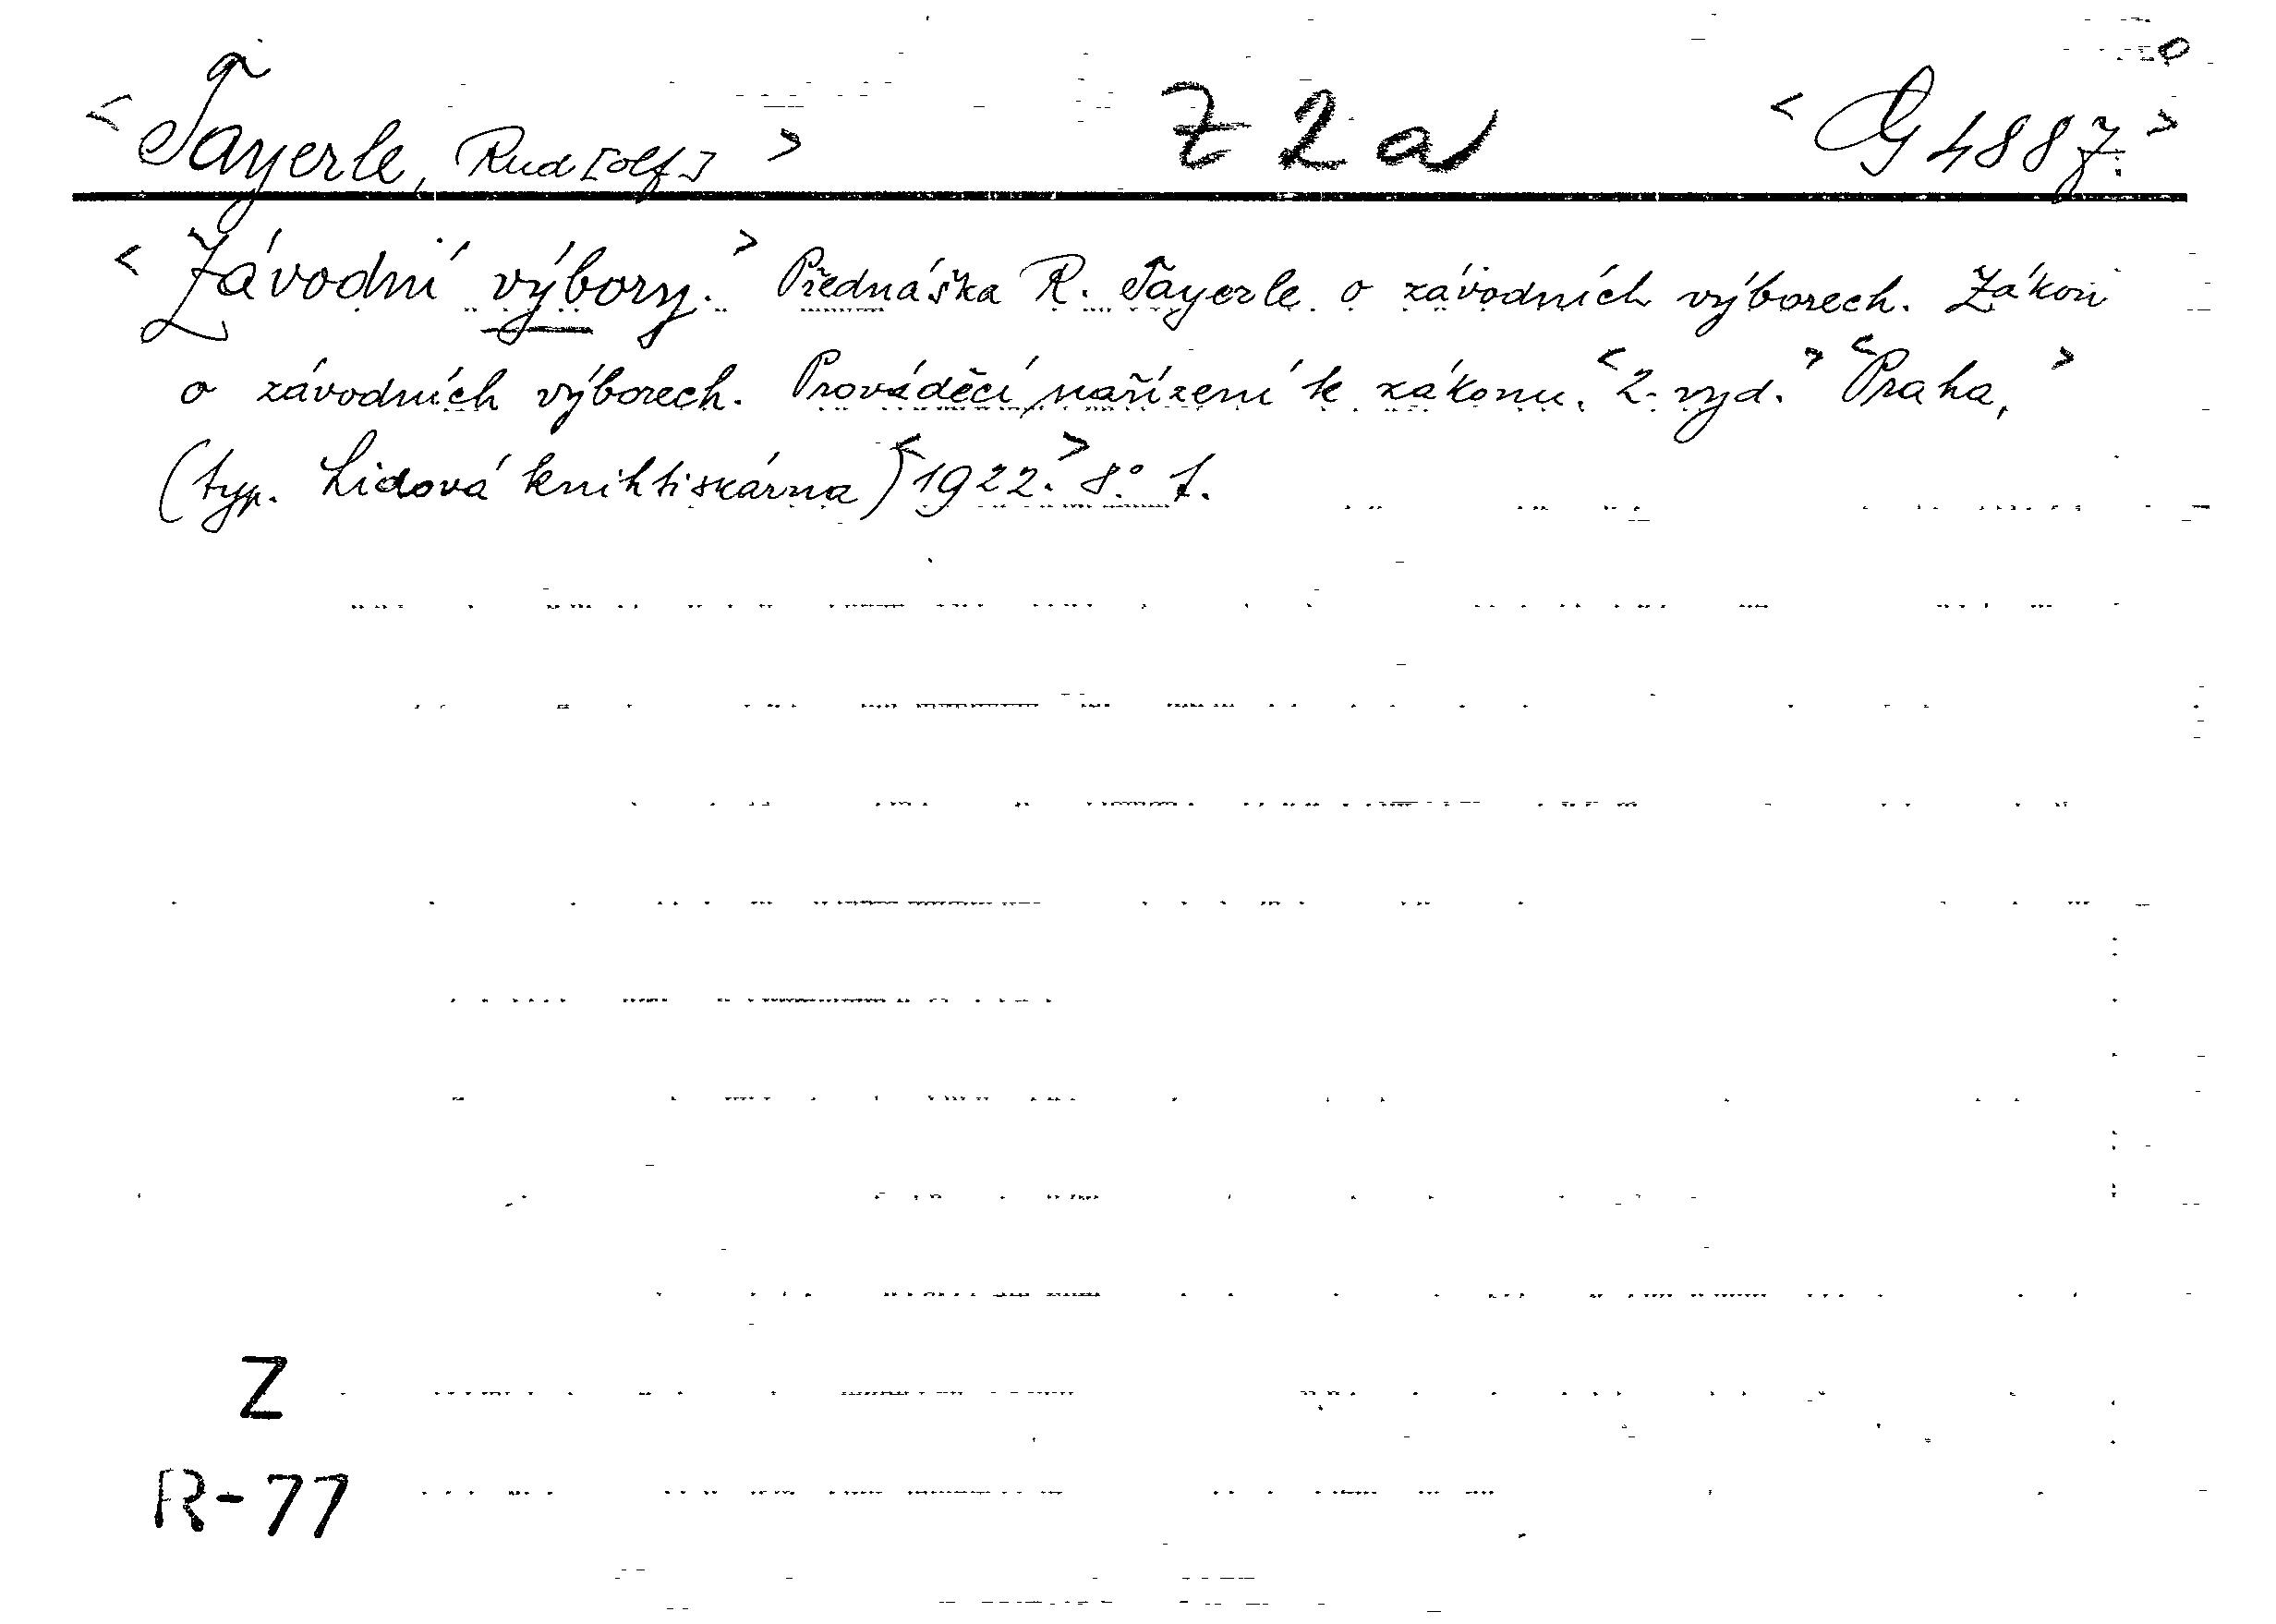 <Tayerle, Rud[olf]> Z 2 a <G 4887.>
<Závodní výbory.> Přednáška R. Tayerle o závodních výborech. Zákon
o závodních výborech. Prováděcí nařízení k zákonu. <2. vyd.> <Praha,>
(typ. Lidová knihtiskárna) <1922.> 8° 1.
Z
R-77